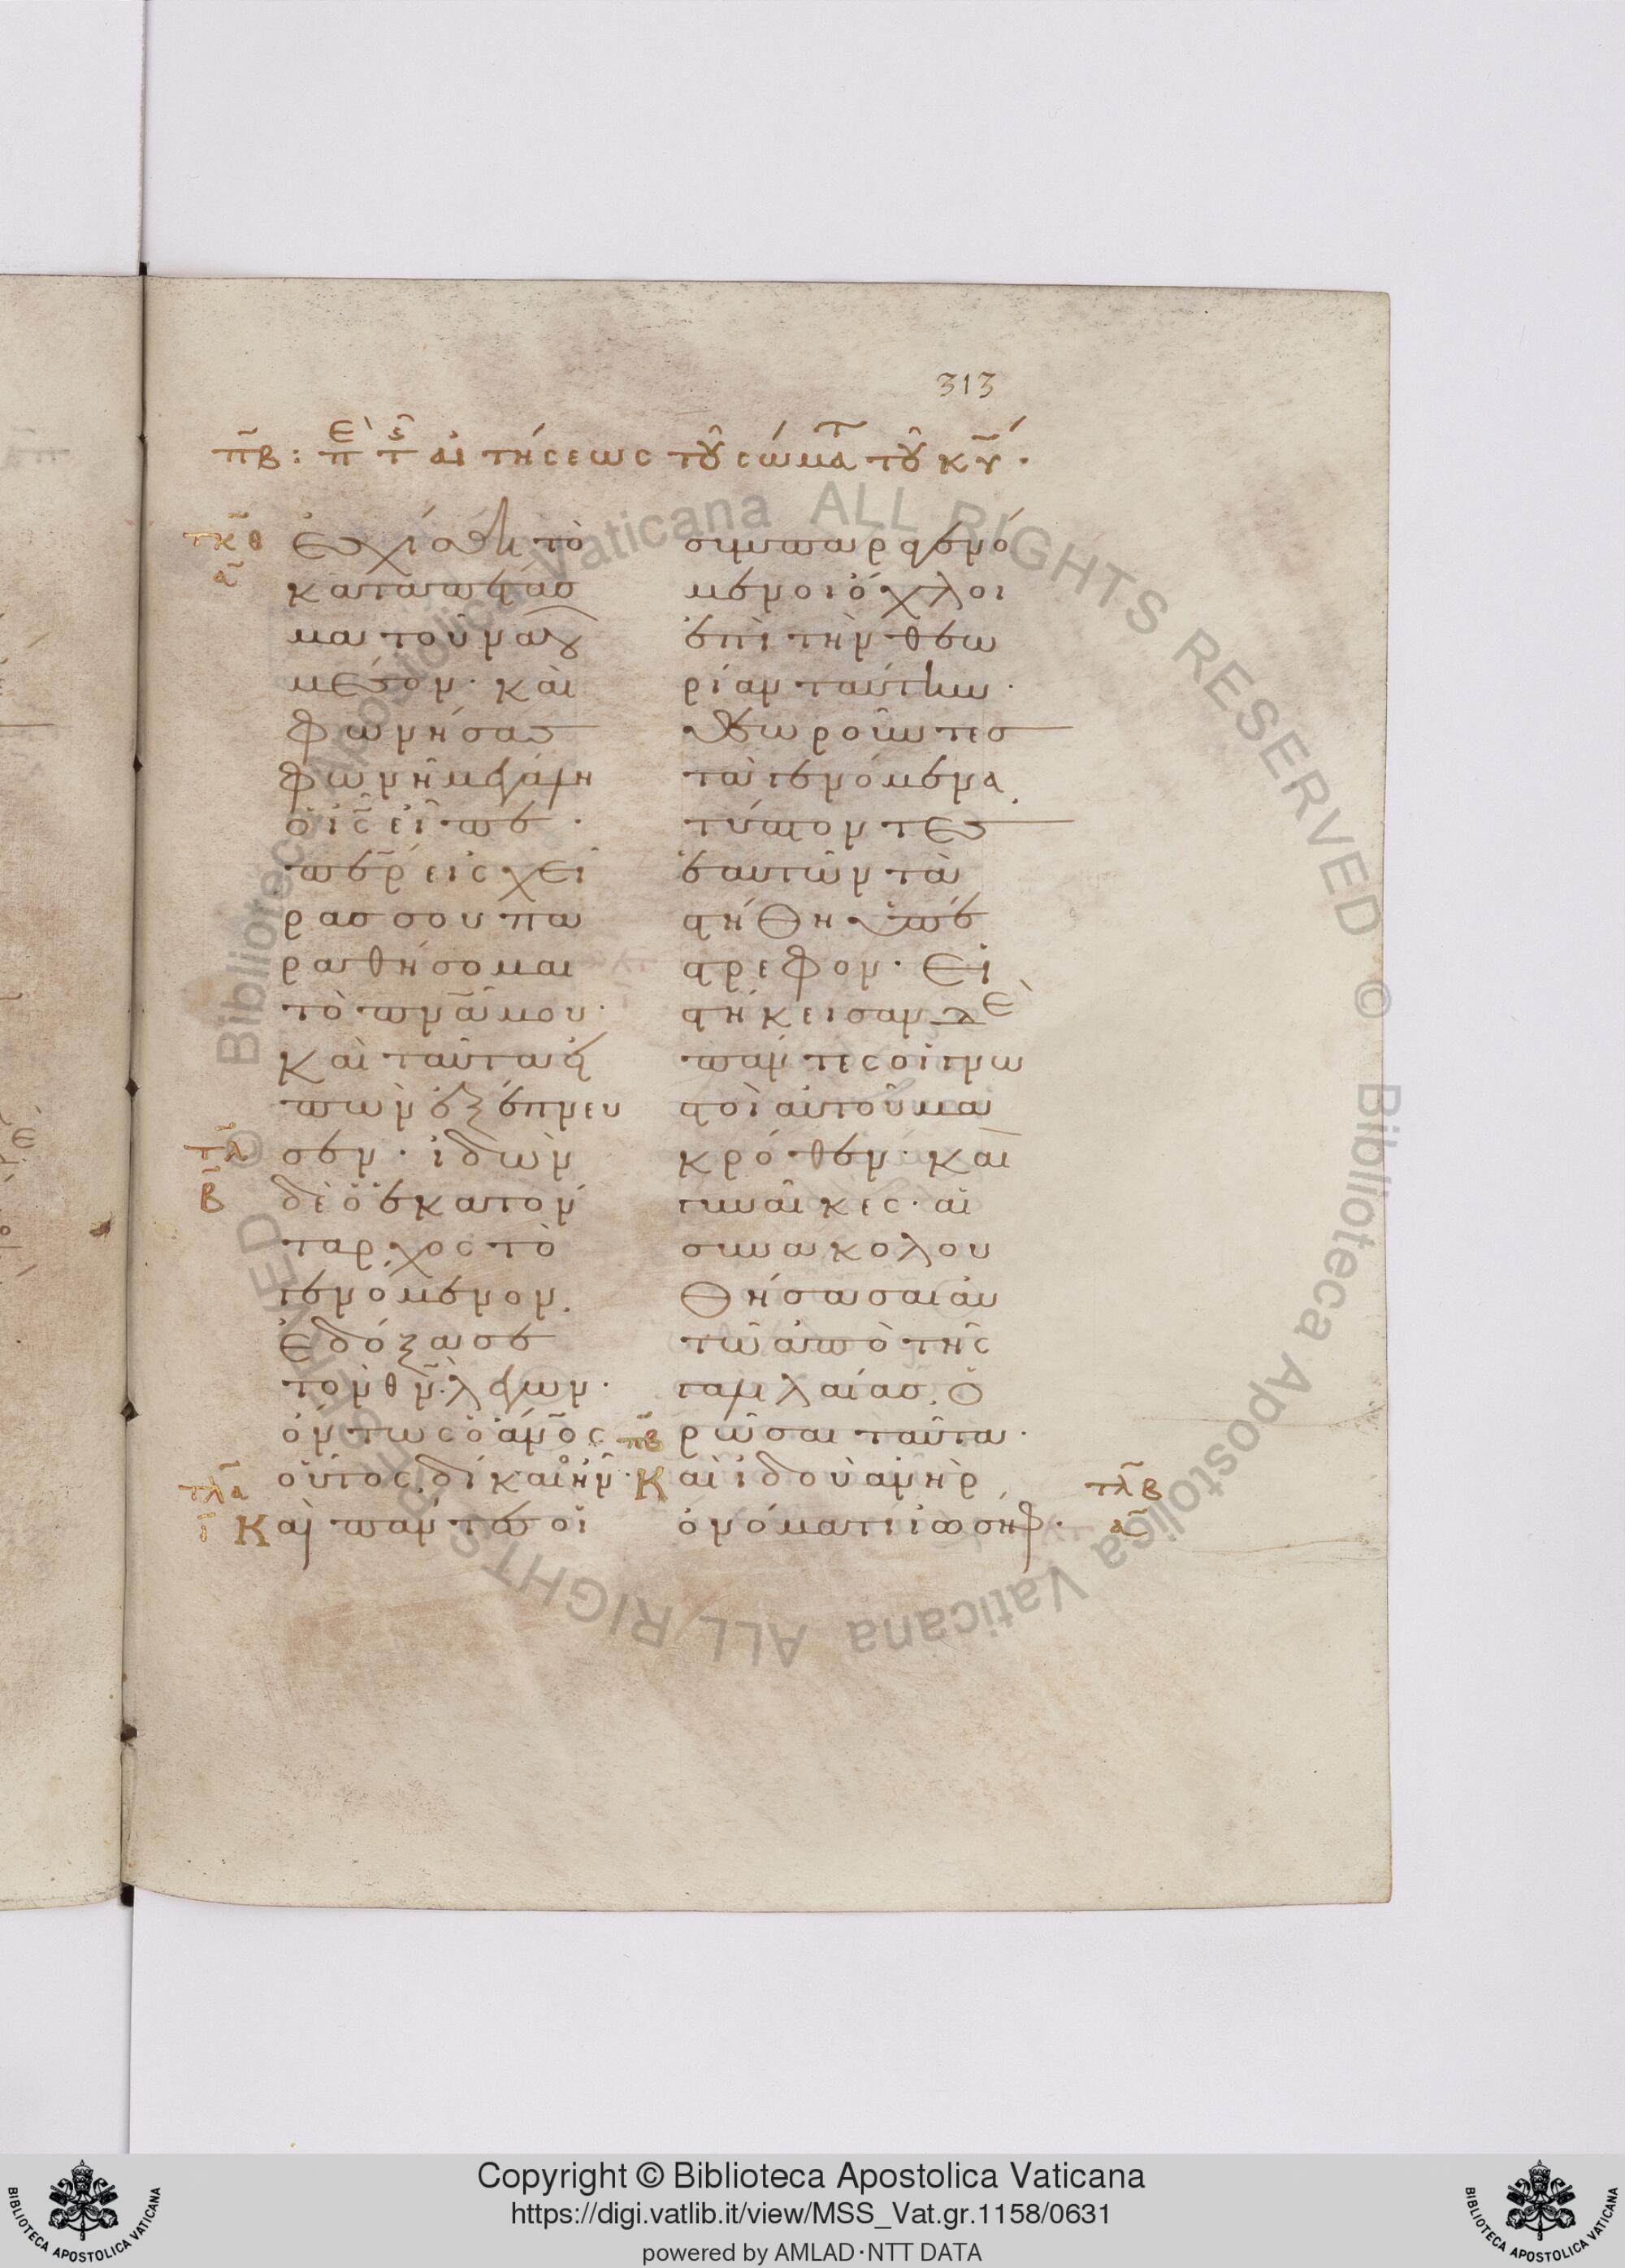 313
π̃β: πὲ τ̑ς αἰτήσεως τοῦ σώμα̃τ τοῦ κῦ·
τκ̃θ
ᾶ
Ἐσχίσθη τὸ
καταπέτασ
μα τοῦ ναοῦ
μέσον· καὶ
φωνήσας
φωνῆ μεγάλη
ὁ ις̃ εἶπε·
περ̃ εἰς χεῖ
ρασ σου πα
ραθήσομαι
τὸ πνᾶ μου·
Καὶ ταῦτα εἰ
πὼν ἐξέπνευ
τ̃λ
β̃
σεν· ἰδὼν
δὲ ὁ ἑκατόν
ταρχος τὸ
γενόμενον.
ἐδόξασε
τὸν θν̃· λέγων·
ὄντως ὁ ἄνο̃ς
οὗτος δίκαιο ἦν·
τλ̃α
ῖ
Καὶ πάντες οἱ
συμπαραγενό
μενοι ὄχλοι
ἐπὶ τὴν θεω
ρίαν ταύτην·
θεωροῦντεσ
τὰ γενόμενα.
τύπτοντες
ἑαυτῶν τὰ
στήθη ὑπέ
στρεφον· Εἱ
στήκεισαν δὲ
πάντες οἱ γνω
στοὶ αὐτοῦ μα
κρόθεν· καὶ
γυναῖκες· αἱ
συνακολου
θήσασαι αὐ
τῶ ἀπὸ τῆς
γαλιλαίασ. ὁ
ρῶσαι ταῦτα·
π̃β
Καὶ ἰδοὺ ἀνὴρ
ὀνόματι ἰωσήφ·
τλ̃β
ᾶ
Copyright © Biblioteca Apostolica Vaticana
https://digi.vatlib.it/view/MSS_Vat.gr.1158/0631
powered by AMLAD·NTT DATA
BIBLIOTECA APOSTOLICA VATICANA
BIBLIOTECA APOSTOLICA VATICANA
© Biblioteca Apostolica Vaticana ALL RIGHTS RESERVED © Biblioteca Apostolica Vaticana ALL RIGHTS RESERVED